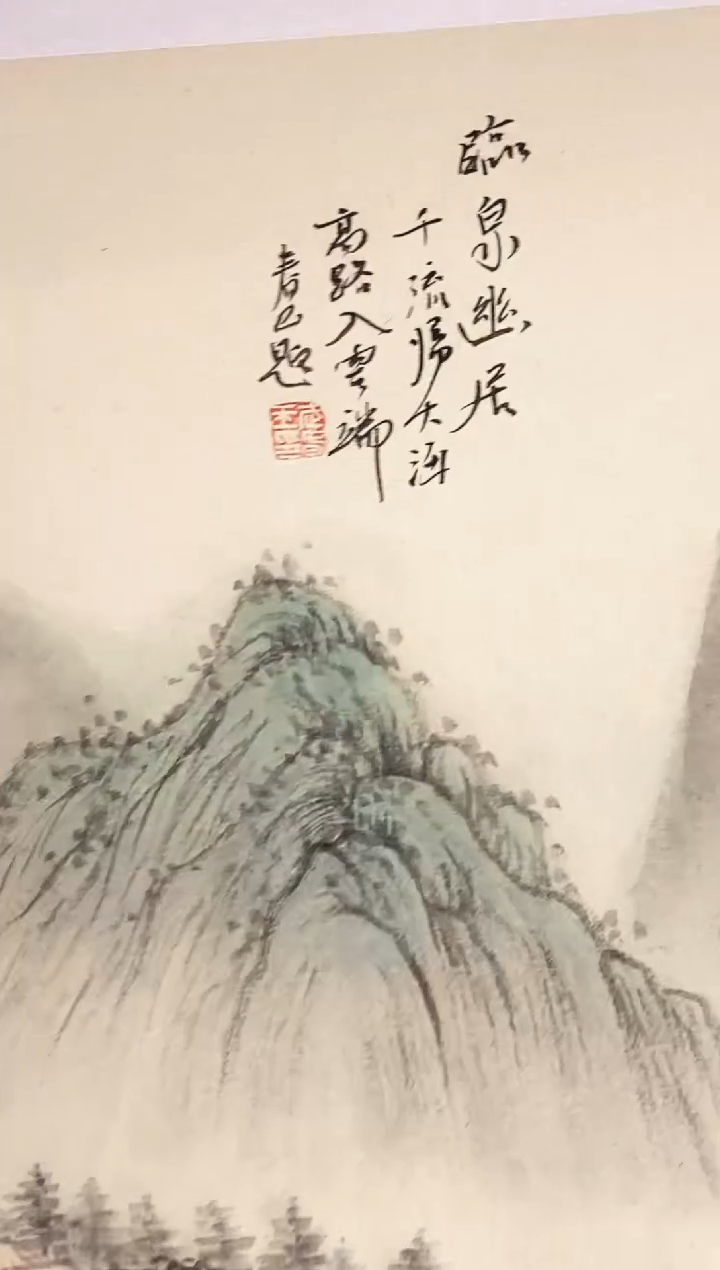 臨泉幽居
千流歸大海
高路入雲端
春山題